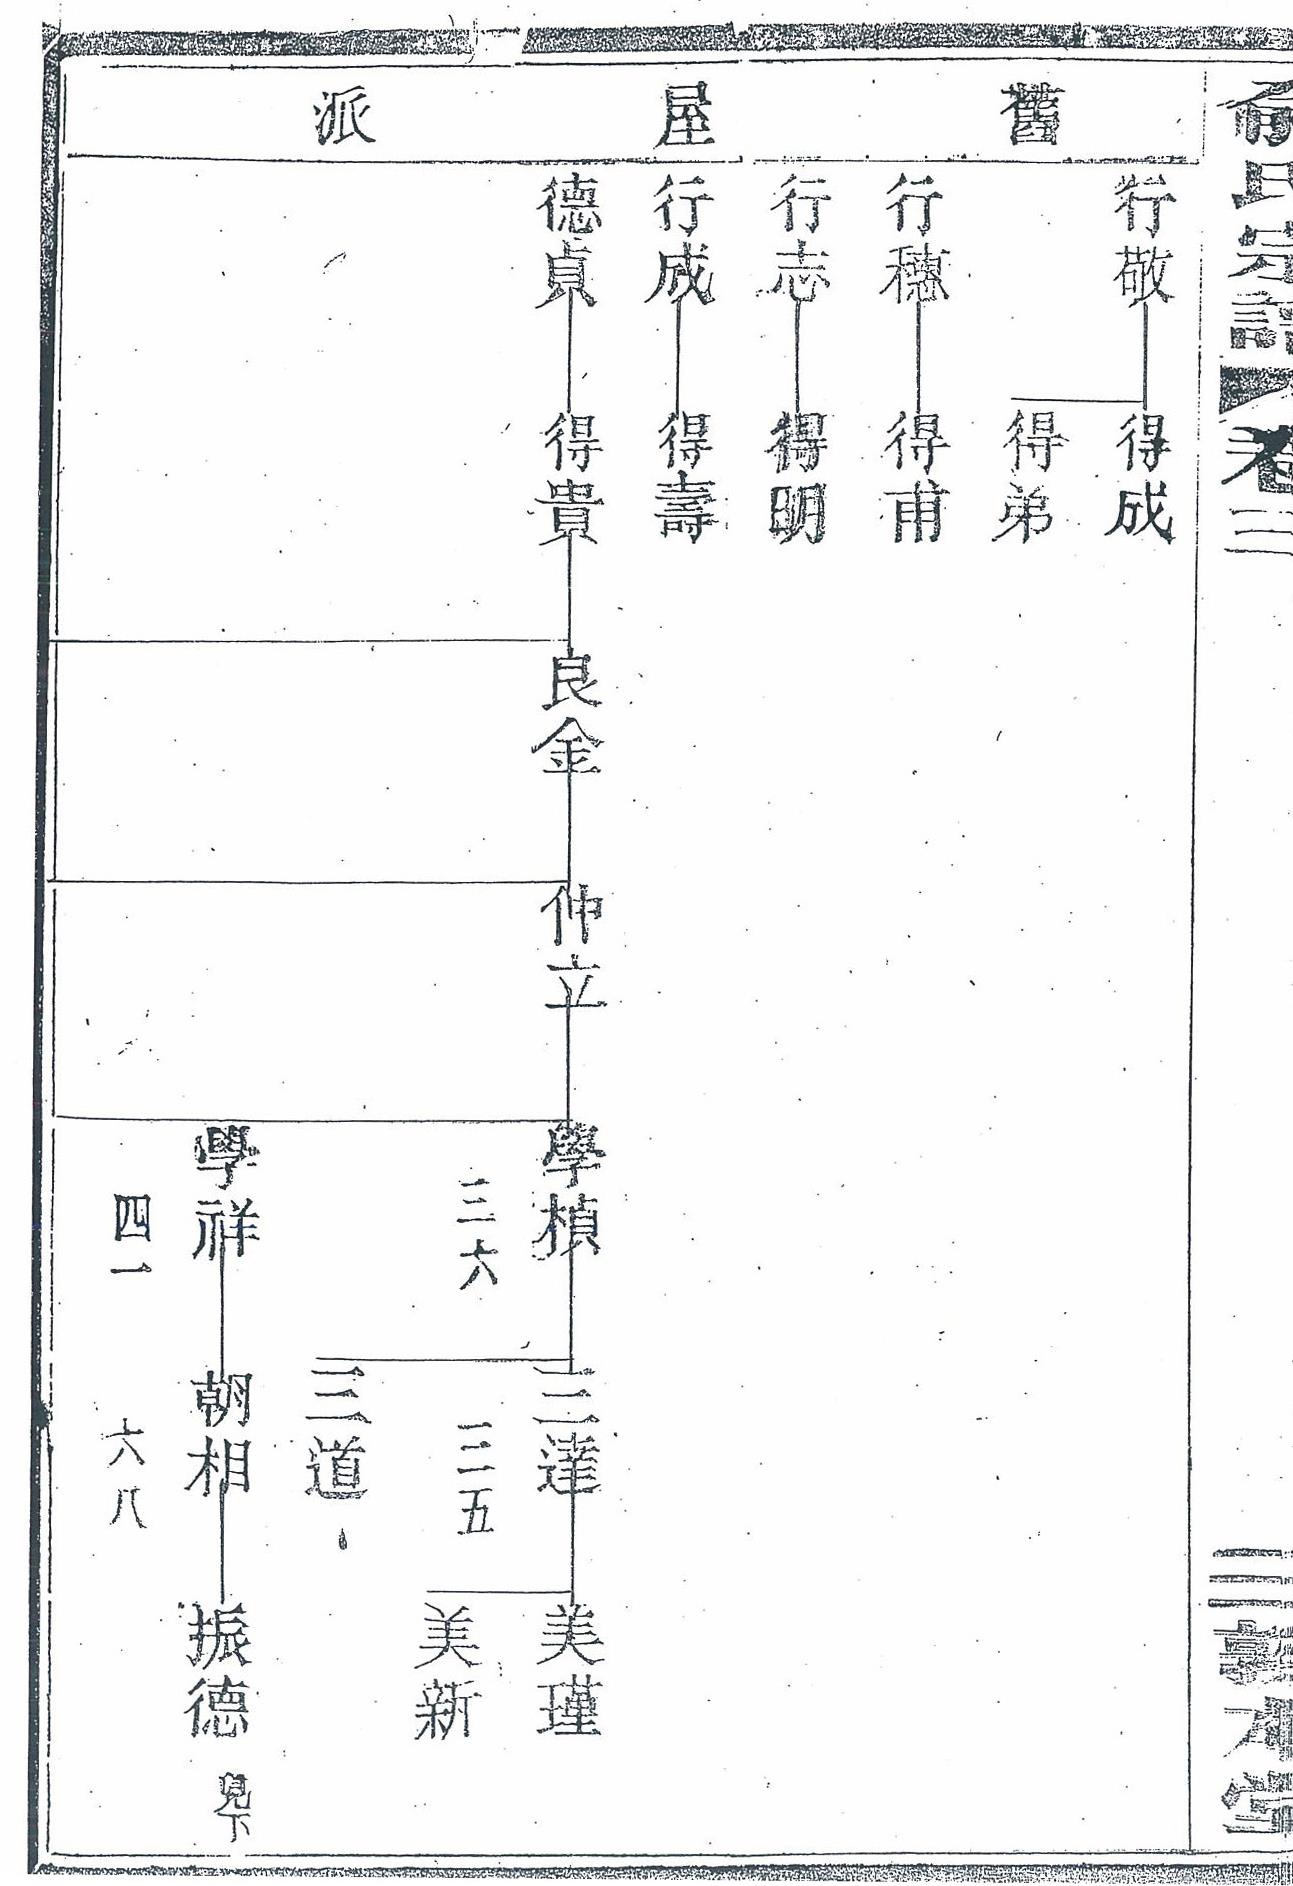 俞氏宗譜
卷二
三
敦本堂
舊屋派
行敬
得成
得弟
行穗
得甫
行志
得明
行成
得壽
德貞
得貴
良金
仲立
學楨
三六
三達
三五
美瑾
美新
三道
學祥
四一
朝相
六八
振德
見下